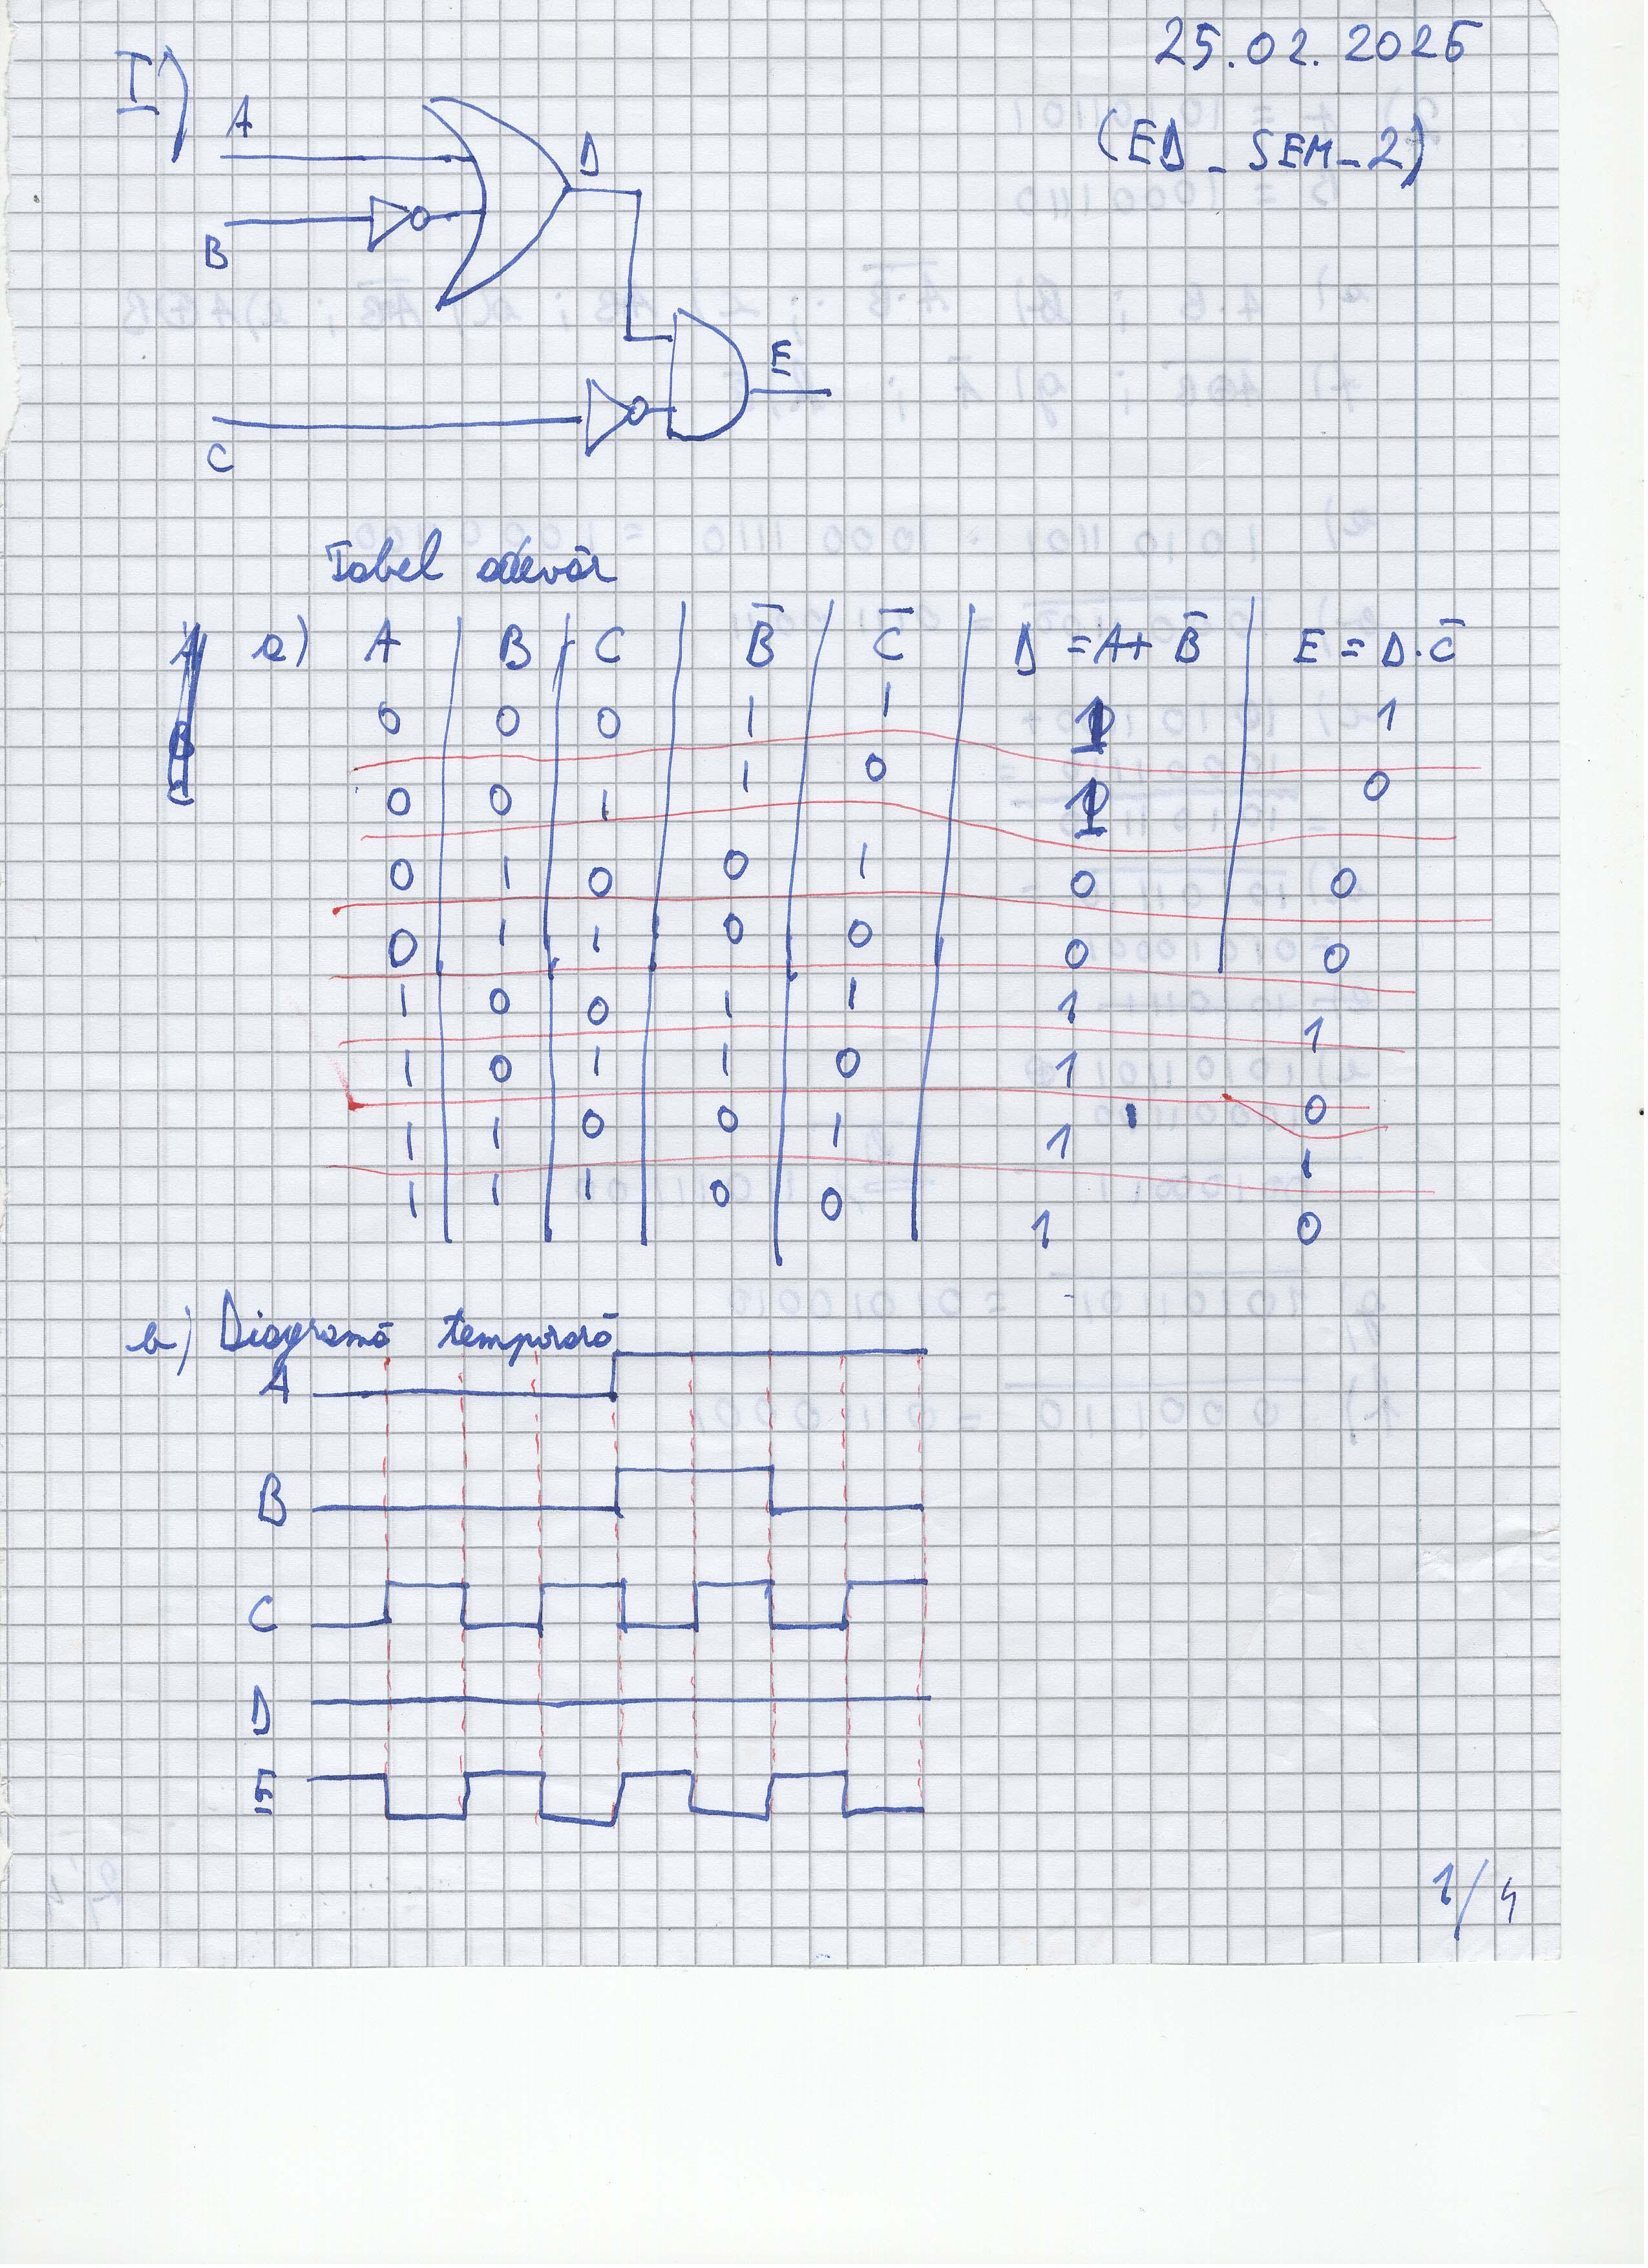 25.02.2026
I)
(ED_SEM_2)
A
D
B
E
C
Tabel adevăr
a) A B C B̄ C̄ D = A + B̄ E = D · C̄
0 0 0 1 1 1 1
0 0 1 1 0 1 0
0 1 0 0 1 0 0
0 1 1 0 0 0 0
1 0 0 1 1 1 1
1 0 1 1 0 1 0
1 1 0 0 1 1 1
1 1 1 0 0 1 0
b) Diagramă temporară
A
B
C
D
E
1/4